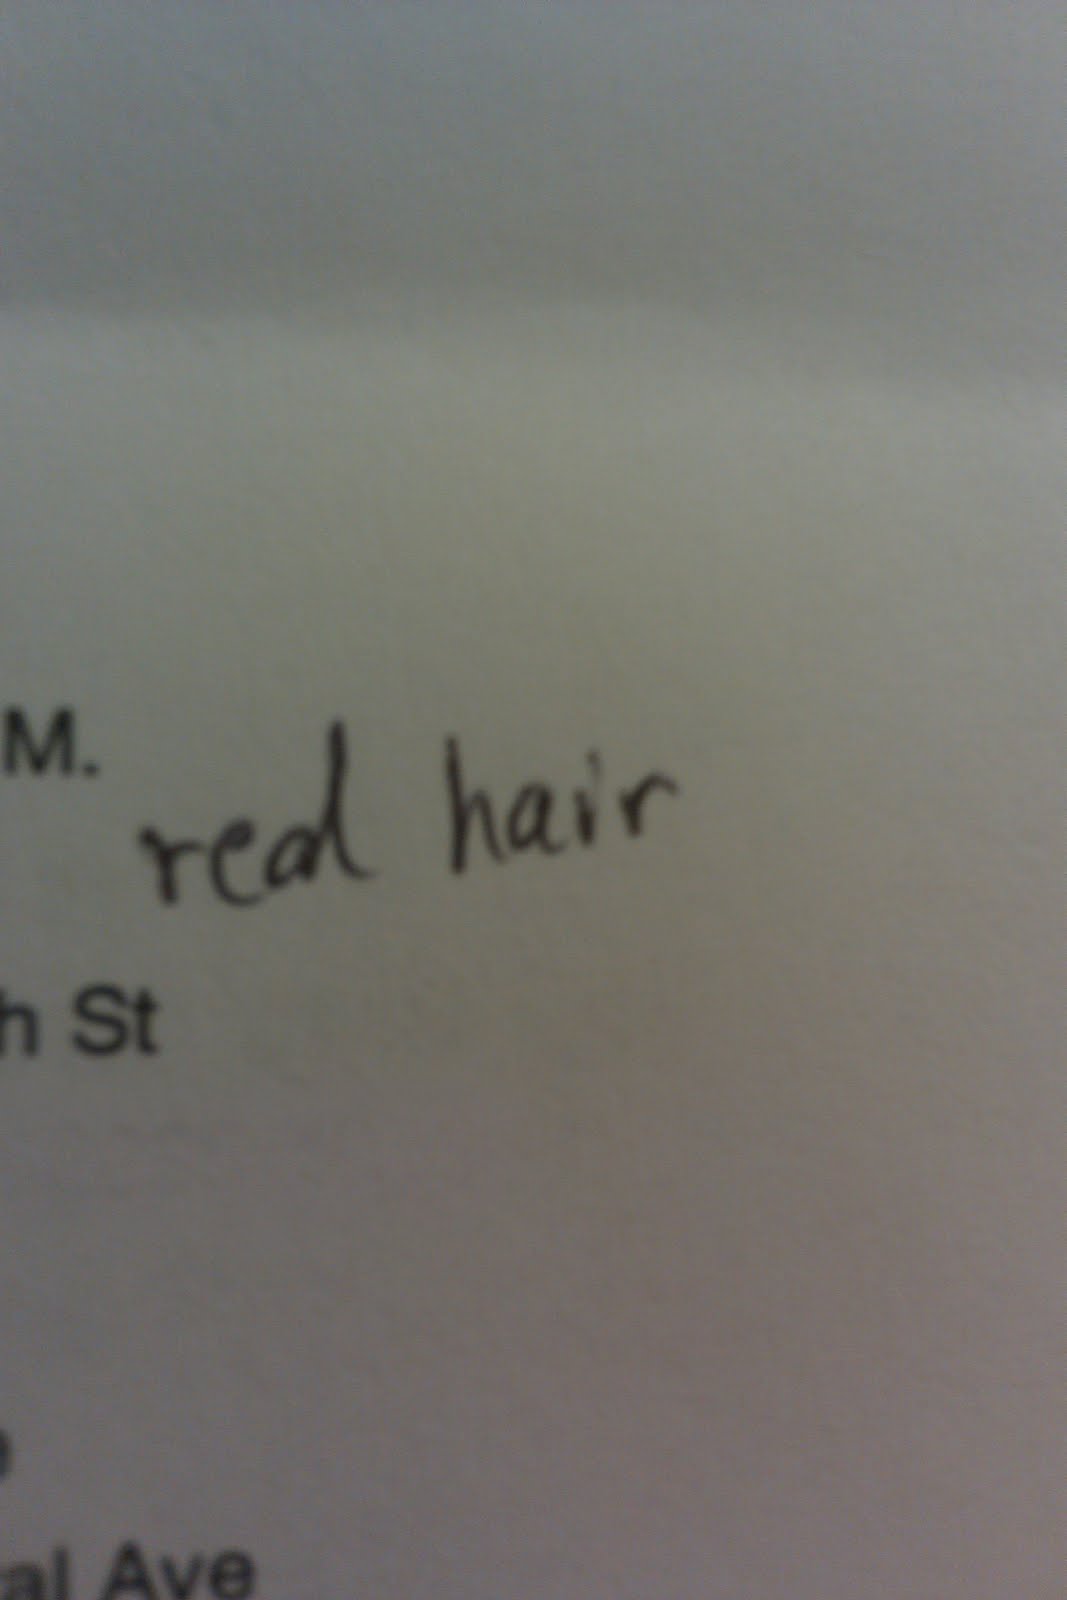 M.
red hair
h St
al Ave